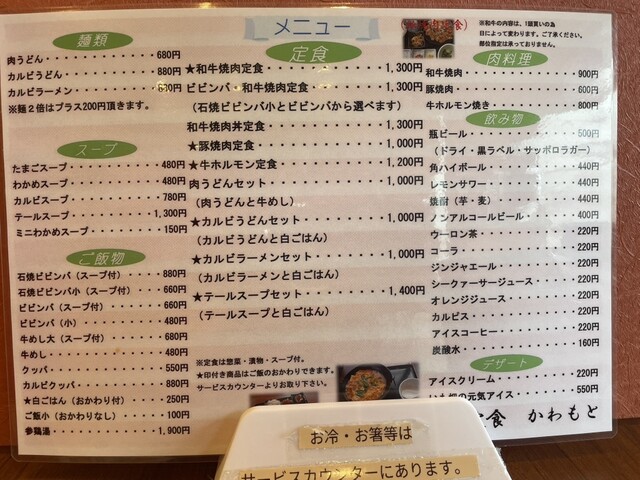 メニュー
麺類
肉うどん・・・・・・・・・・680円
カルビうどん・・・・・・・・880円
カルビラーメン・・・・・・・680円
※麺２倍はプラス200円頂きます。
スープ
たまごスープ・・・・・・・・480円
わかめスープ・・・・・・・・480円
カルビスープ・・・・・・・・780円
テールスープ・・・・・・・1,300円
ミニわかめスープ・・・・・・150円
ご飯物
石焼ビビンバ（スープ付）・・・・・880円
石焼ビビンバ小（スープ付）・・・・660円
ビビンバ（スープ付）・・・・・・・660円
ビビンバ（小）・・・・・・・・・・480円
牛めし大（スープ付）・・・・・・・680円
牛めし・・・・・・・・・・・・・・480円
クッパ・・・・・・・・・・・・・・550円
カルビクッパ・・・・・・・・・・・880円
★白ごはん（おかわり付）・・・・・250円
ご飯小（おかわりなし）・・・・・・100円
参鶏湯・・・・・・・・・・・・・1,900円
定食
★和牛焼肉定食・・・・・・・・・・1,300円
ビビンバ・和牛焼肉定食・・・・・・1,300円
（石焼ビビンバ小とビビンバから選べます）
和牛焼肉丼定食・・・・・・・・・・1,300円
★豚焼肉定食・・・・・・・・・・・1,000円
★牛ホルモン定食・・・・・・・・・1,200円
肉うどんセット・・・・・・・・・・1,000円
（肉うどんと牛めし）
★カルビうどんセット・・・・・・・1,000円
（カルビうどんと白ごはん）
★カルビラーメンセット・・・・・・1,000円
（カルビラーメンと白ごはん）
★テールスープセット・・・・・・・1,400円
（テールスープと白ごはん）
※定食は惣菜・漬物・スープ付。
★印付き商品はご飯のおかわりできます。
サービスカウンターよりお取り下さい。
※和牛の内容は、1頭買いの為
日によって変わります。ご了承ください。
部位指定は承っておりません。
肉料理
和牛焼肉・・・・・・・・・・・・900円
豚焼肉・・・・・・・・・・・・・600円
牛ホルモン焼き・・・・・・・・・800円
飲み物
瓶ビール・・・・・・・・・・・・500円
（ドライ・黒ラベル・サッポロラガー）
角ハイボール・・・・・・・・・・440円
レモンサワー・・・・・・・・・・440円
焼酎（芋・麦）・・・・・・・・・440円
ノンアルコールビール・・・・・・400円
ウーロン茶・・・・・・・・・・・220円
コーラ・・・・・・・・・・・・・220円
ジンジャエール・・・・・・・・・220円
シークァーサージュース・・・・・220円
オレンジジュース・・・・・・・・220円
カルピス・・・・・・・・・・・・220円
アイスコーヒー・・・・・・・・・220円
炭酸水・・・・・・・・・・・・・160円
デザート
アイスクリーム・・・・・・・・・220円
の元気アイス・・・・・・550円
食 かわもと
お冷・お箸等は
サービスカウンターにあります。